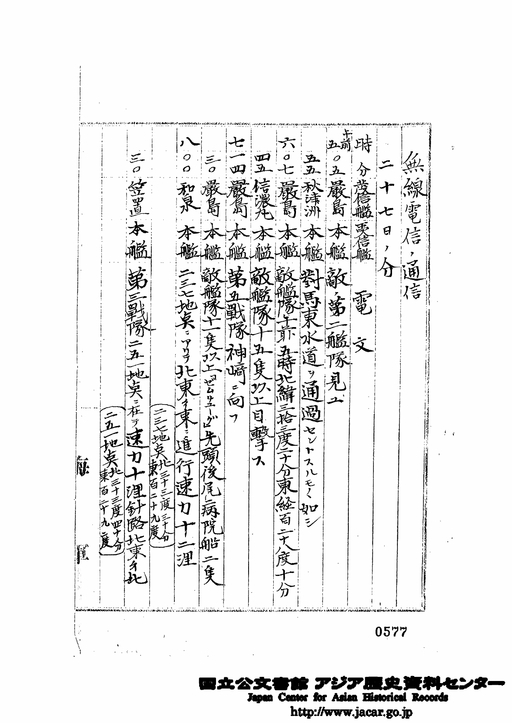 無線電信ノ通信
二十七日ノ分
時 分 發信艦 受信艦 電文
午前
五〇五 嚴島 本艦 敵ノ第二艦隊見ユ
五五 秋津洲 本艦 對馬東水道ヲ通過セントスルモノヽ如シ
六〇七 嚴島 本艦 敵艦隊午前五時北緯三拾三度二十分東経百二十八度十分
四五 信濃丸 本艦 敵艦隊十五隻以上目撃ス
七一四 嚴島 本艦 第五戰隊神崎ニ向フ
三〇 嚴島 本艦 敵艦隊十一隻以上 先頭後尾ニ病院船二隻
八〇〇 和泉 本艦 二三七地点ニアリテ北東々東ニ進行速力十二浬
二三七地点北三十三度三十分
東百二十九度
三〇 笠置 本艦 第三戰隊二五一地点ニ在リ速力十浬針路北東々北
二五一地点北三十三度四十分
東百二十九度
海 軍
0577
国立公文書館 アジア歴史資料センター
Japan Center for Asian Historical Records
http://www.jacar.go.jp